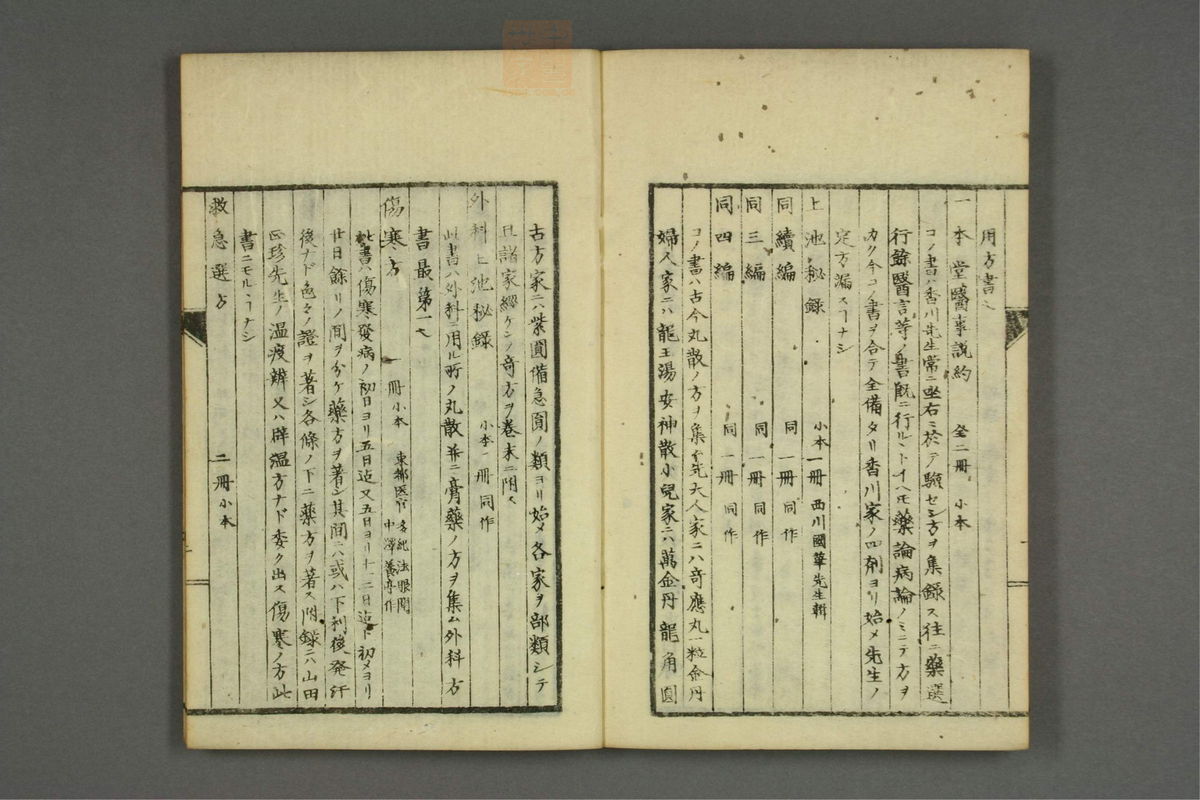 用方書也
一本堂醫事説約 全二冊 小本
コノ書ハ香川先生常ニ坐右ニ於テ驗セシ方ヲ集録ス往ニ藥選
行餘醫言等ノ書既ニ行ルヽトイヘモ藥論病論ノミニテ方ヲ
カク今コノ書ヲ合テ全備タリ香川家ノ四劑ヨリ始メ先生ノ
定方漏スヿナシ
上池秘録 小本一冊 西川國華先生輯
同續編 同一冊 同作
同三編 同一冊 同作
同四編 同一冊 同作
コノ書ハ古今丸散ノ方ヲ集ム先大人家ニハ奇應丸一粒金丹
婦人家ニハ龍王湯安神散小兒家ニハ萬金丹龍角圓
古方家ニハ紫圓備急圓ノ類ヨリ始メ各家ヲ部類シテ
且諸家經ケンノ奇方ヲ巻末ニ附ス
外科上池秘録 小本一冊 同作
此書ハ外科ニ用ル所ノ丸散并ニ膏藥ノ方ヲ集ム外科方
書最第一也
傷寒方 一冊 小本 東都医官多紀法眼閲
中澤養亭作
此書ハ傷寒發病ノ初日ヨリ五日迄又五日ヨリ十二日迄ト初メヨリ
廿日餘リノ間ヲ分ケ藥方ヲ著シ其間ニハ或ハ下利後発汗
後ナド色々ノ證ヲ著シ各條ノ下ニ藥方ヲ著ス附録ニハ山田
正珍先生ノ温疫辨又ハ辟溫方ナド委ク出ス傷寒ノ方此
書ニモルヽヿナシ
救急選方 二冊 小本